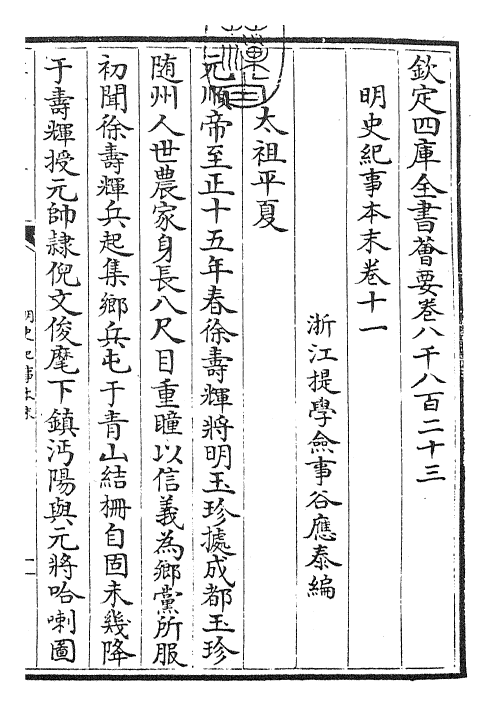 欽定四庫全書薈要卷八千八百二十三
明史紀事本末卷十一
浙江提學僉事谷應泰編
太祖平夏
元順帝至正十五年春徐壽輝將明玉珍據成都玉珍
随州人世農家身長八尺目重瞳以信義為鄉黨所服
初聞徐壽輝兵起集鄉兵屯于青山結柵自固未幾降
于壽輝授元帥隷倪文俊麾下鎮沔陽與元將哈喇圖
明史紀事本末
一